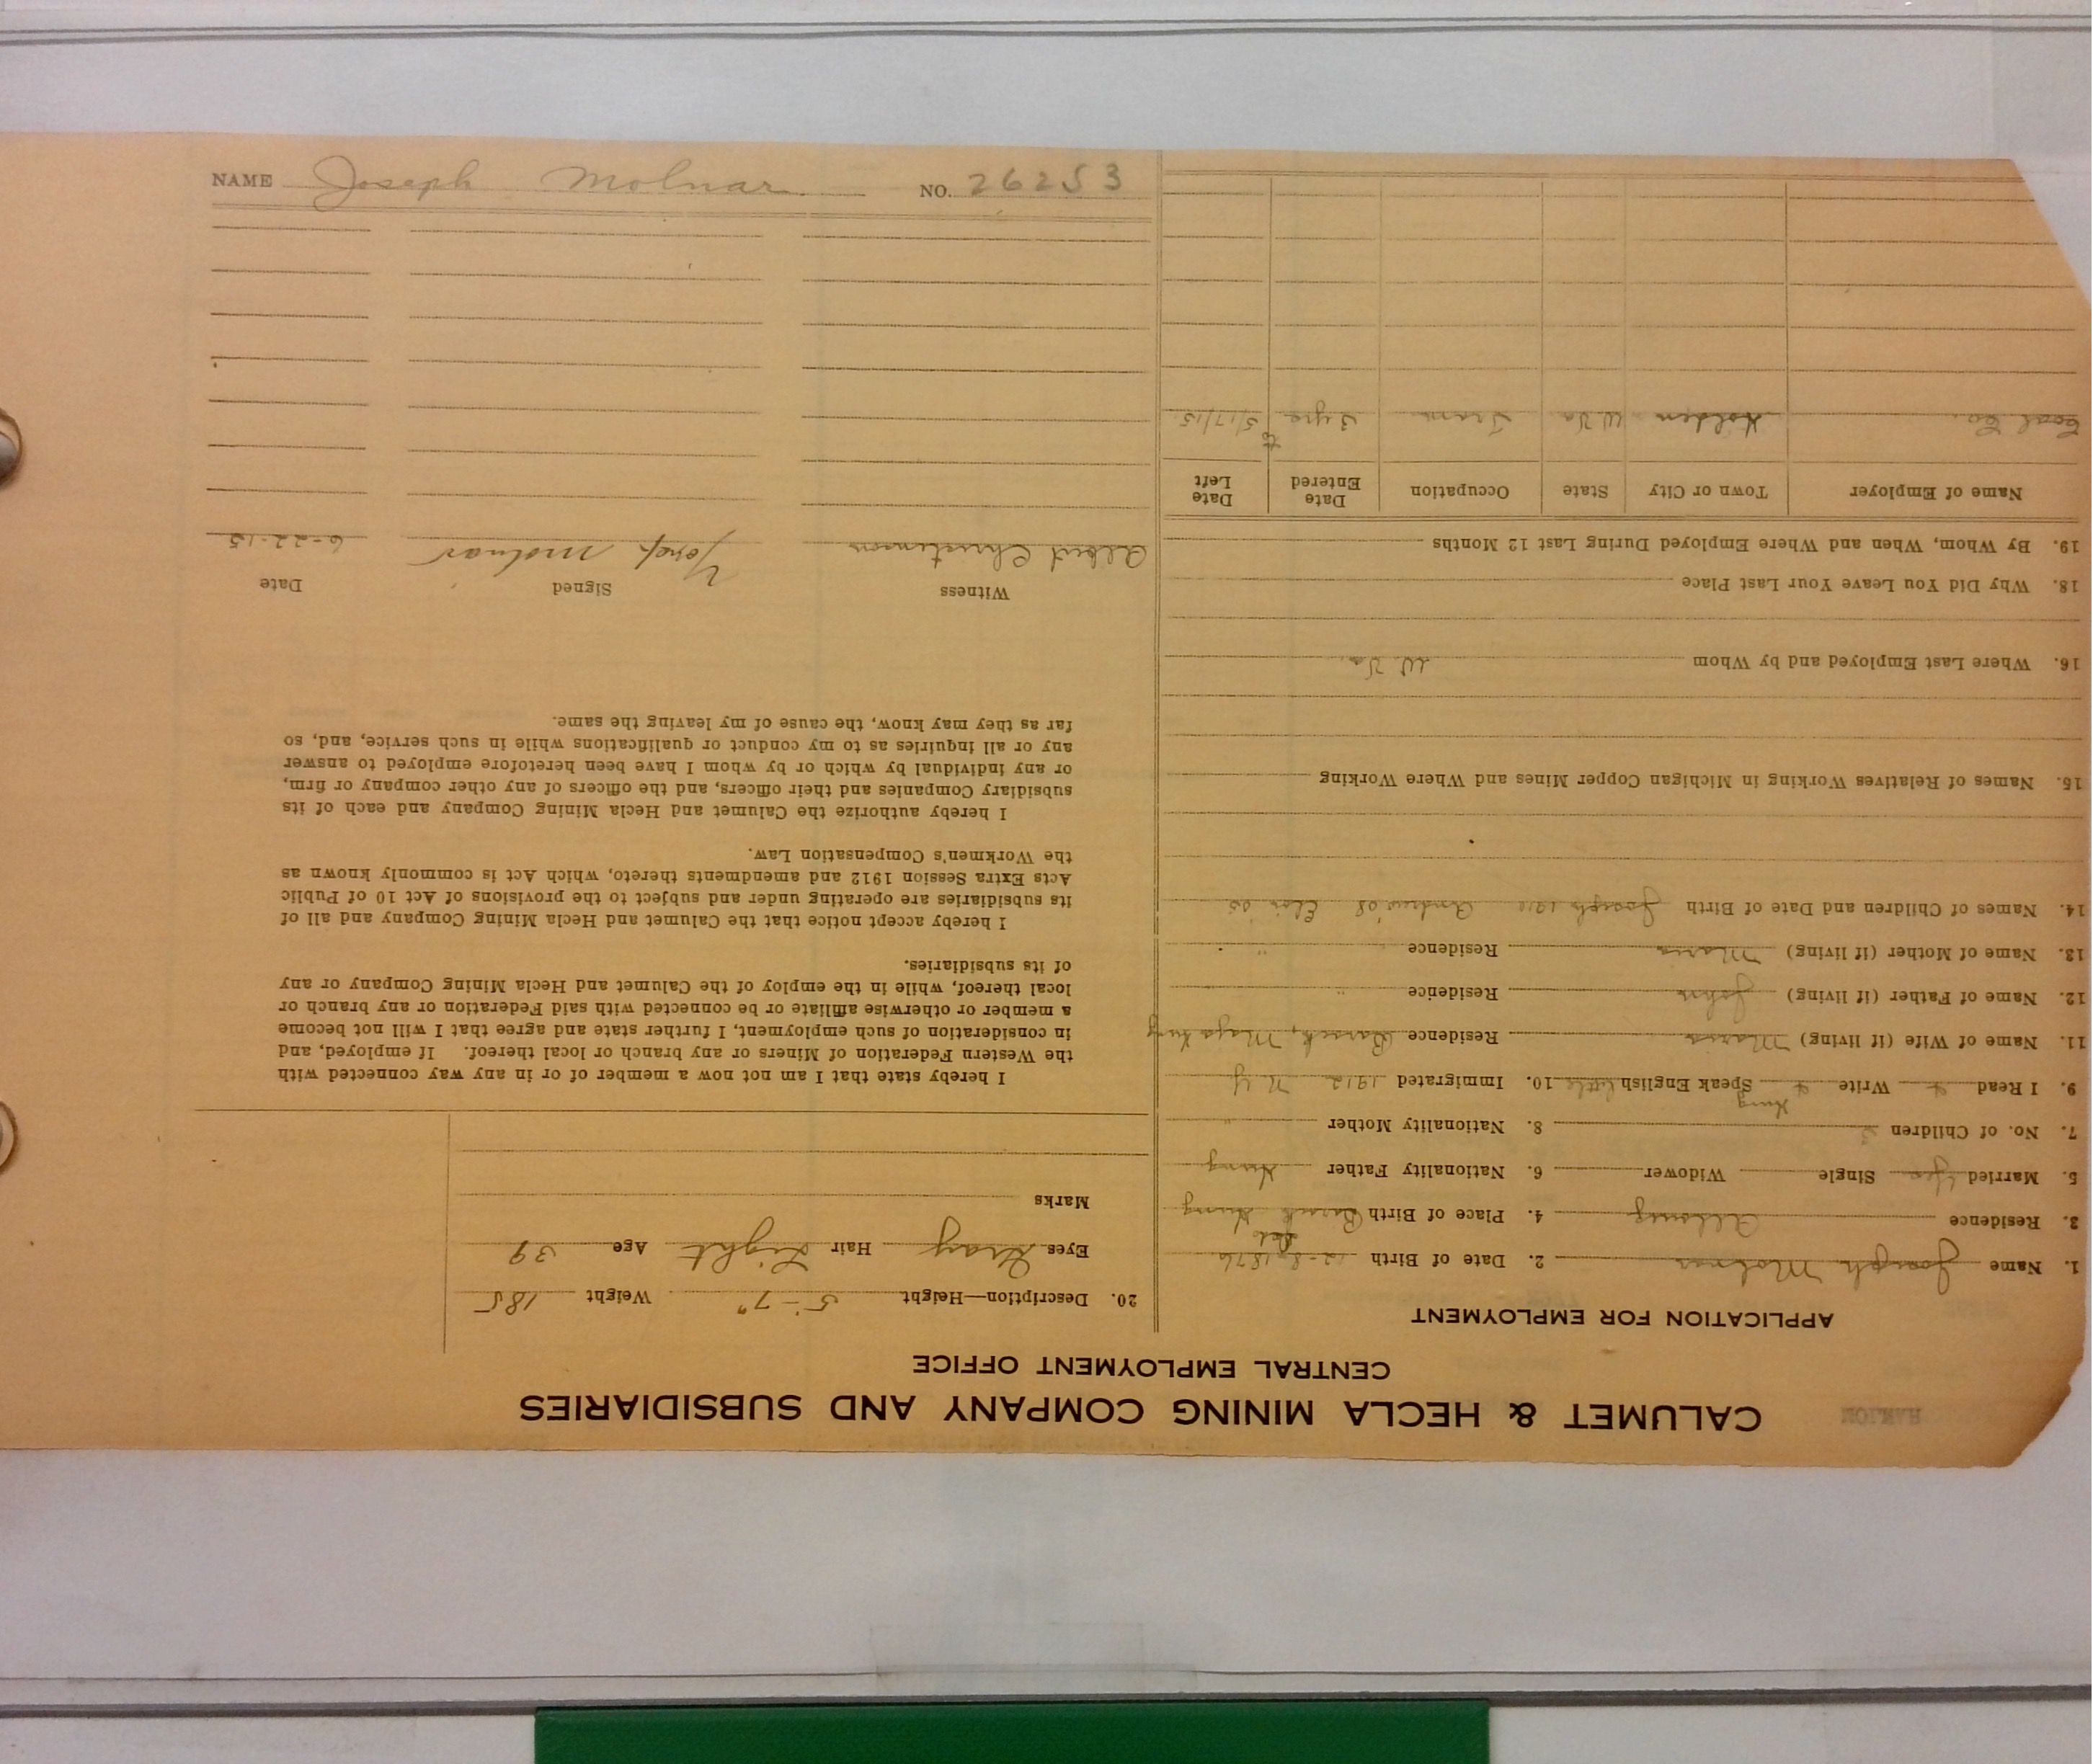 NAME Joseph Molnar NO. 26253
CALUMET & HECLA MINING COMPANY AND SUBSIDIARIES
CENTRAL EMPLOYMENT OFFICE
APPLICATION FOR EMPLOYMENT
1. Name Joseph Molnar 2. Date of Birth 12-8-1876
3. Residence 4. Place of Birth Hung
5. Married Yes Single Widower 6. Nationality Father Hung
7. No. of Children 3 8. Nationality Mother "
Hung
9. I Read Write Speak English little 10. Immigrated 1912 N Y
11. Name of Wife (if living) Maria Residence Hung
12. Name of Father (if living) John Residence "
13. Name of Mother (if living) Maria Residence "
14. Names of Children and Date of Birth Joseph 1912 Andrew '08
15. Names of Relatives Working in Michigan Copper Mines and Where Working
16. Where Last Employed and by Whom W. Va.
18. Why Did You Leave Your Last Place
19. By Whom, When and Where Employed During Last 12 Months
Name of Employer Town or City State Occupation Date Entered Date Left
Coal Co. Holden W Va Tram 3 yrs to 5/17/15
20. Description—Height 5-7" Weight 185
Eyes Gray Hair Light Age 39
Marks
I hereby state that I am not now a member of or in any way connected with
the Western Federation of Miners or any branch or local thereof. If employed, and
in consideration of such employment, I further state and agree that I will not become
a member or otherwise affiliate or be connected with said Federation or any branch or
local thereof, while in the employ of the Calumet and Hecla Mining Company or any
of its subsidiaries.
I hereby accept notice that the Calumet and Hecla Mining Company and all of
its subsidiaries are operating under and subject to the provisions of Act 10 of Public
Acts Extra Session 1912 and amendments thereto, which Act is commonly known as
the Workmen's Compensation Law.
I hereby authorize the Calumet and Hecla Mining Company and each of its
subsidiary Companies and their officers, and the officers of any other company or firm,
or any individual by which or by whom I have been heretofore employed to answer
any or all inquiries as to my conduct or qualifications while in such service, and, so
far as they may know, the cause of my leaving the same.
Witness Signed Date
Albert Josef Molnar 6-22-15